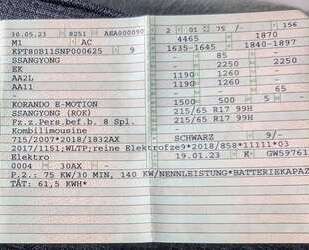 30.05.23 8251 AEA000090
M1 AC
KPT80B11SNP000625 9
SSANGYONG
EK
AA2L
AA11
KORANDO E-MOTION
SSANGYONG (ROK)
Fz.z.Pers.bef.b. 8 Spl.
Kombilimousine
715/2007*2018/1832AX
2017/1151;WLTP;reine Elektrofz
Elektro
0004 30AX
2 01 75 / - 156
4465 1870
1635-1645 1840-1897
- 85
- 2250 2250
1190 1260 -
1190 1260 -
- 65
5
1500 500 - -
215/65 R17 99H
215/65 R17 99H
SCHWARZ 9/-
e9*2018/858*11111*03
19.01.23 K- GW59761
P.2: 75 KW/30 MIN, 140 KW/NENNLEISTUNG*BATTERIEKAPAZ
TÄT: 61,5 KWH*